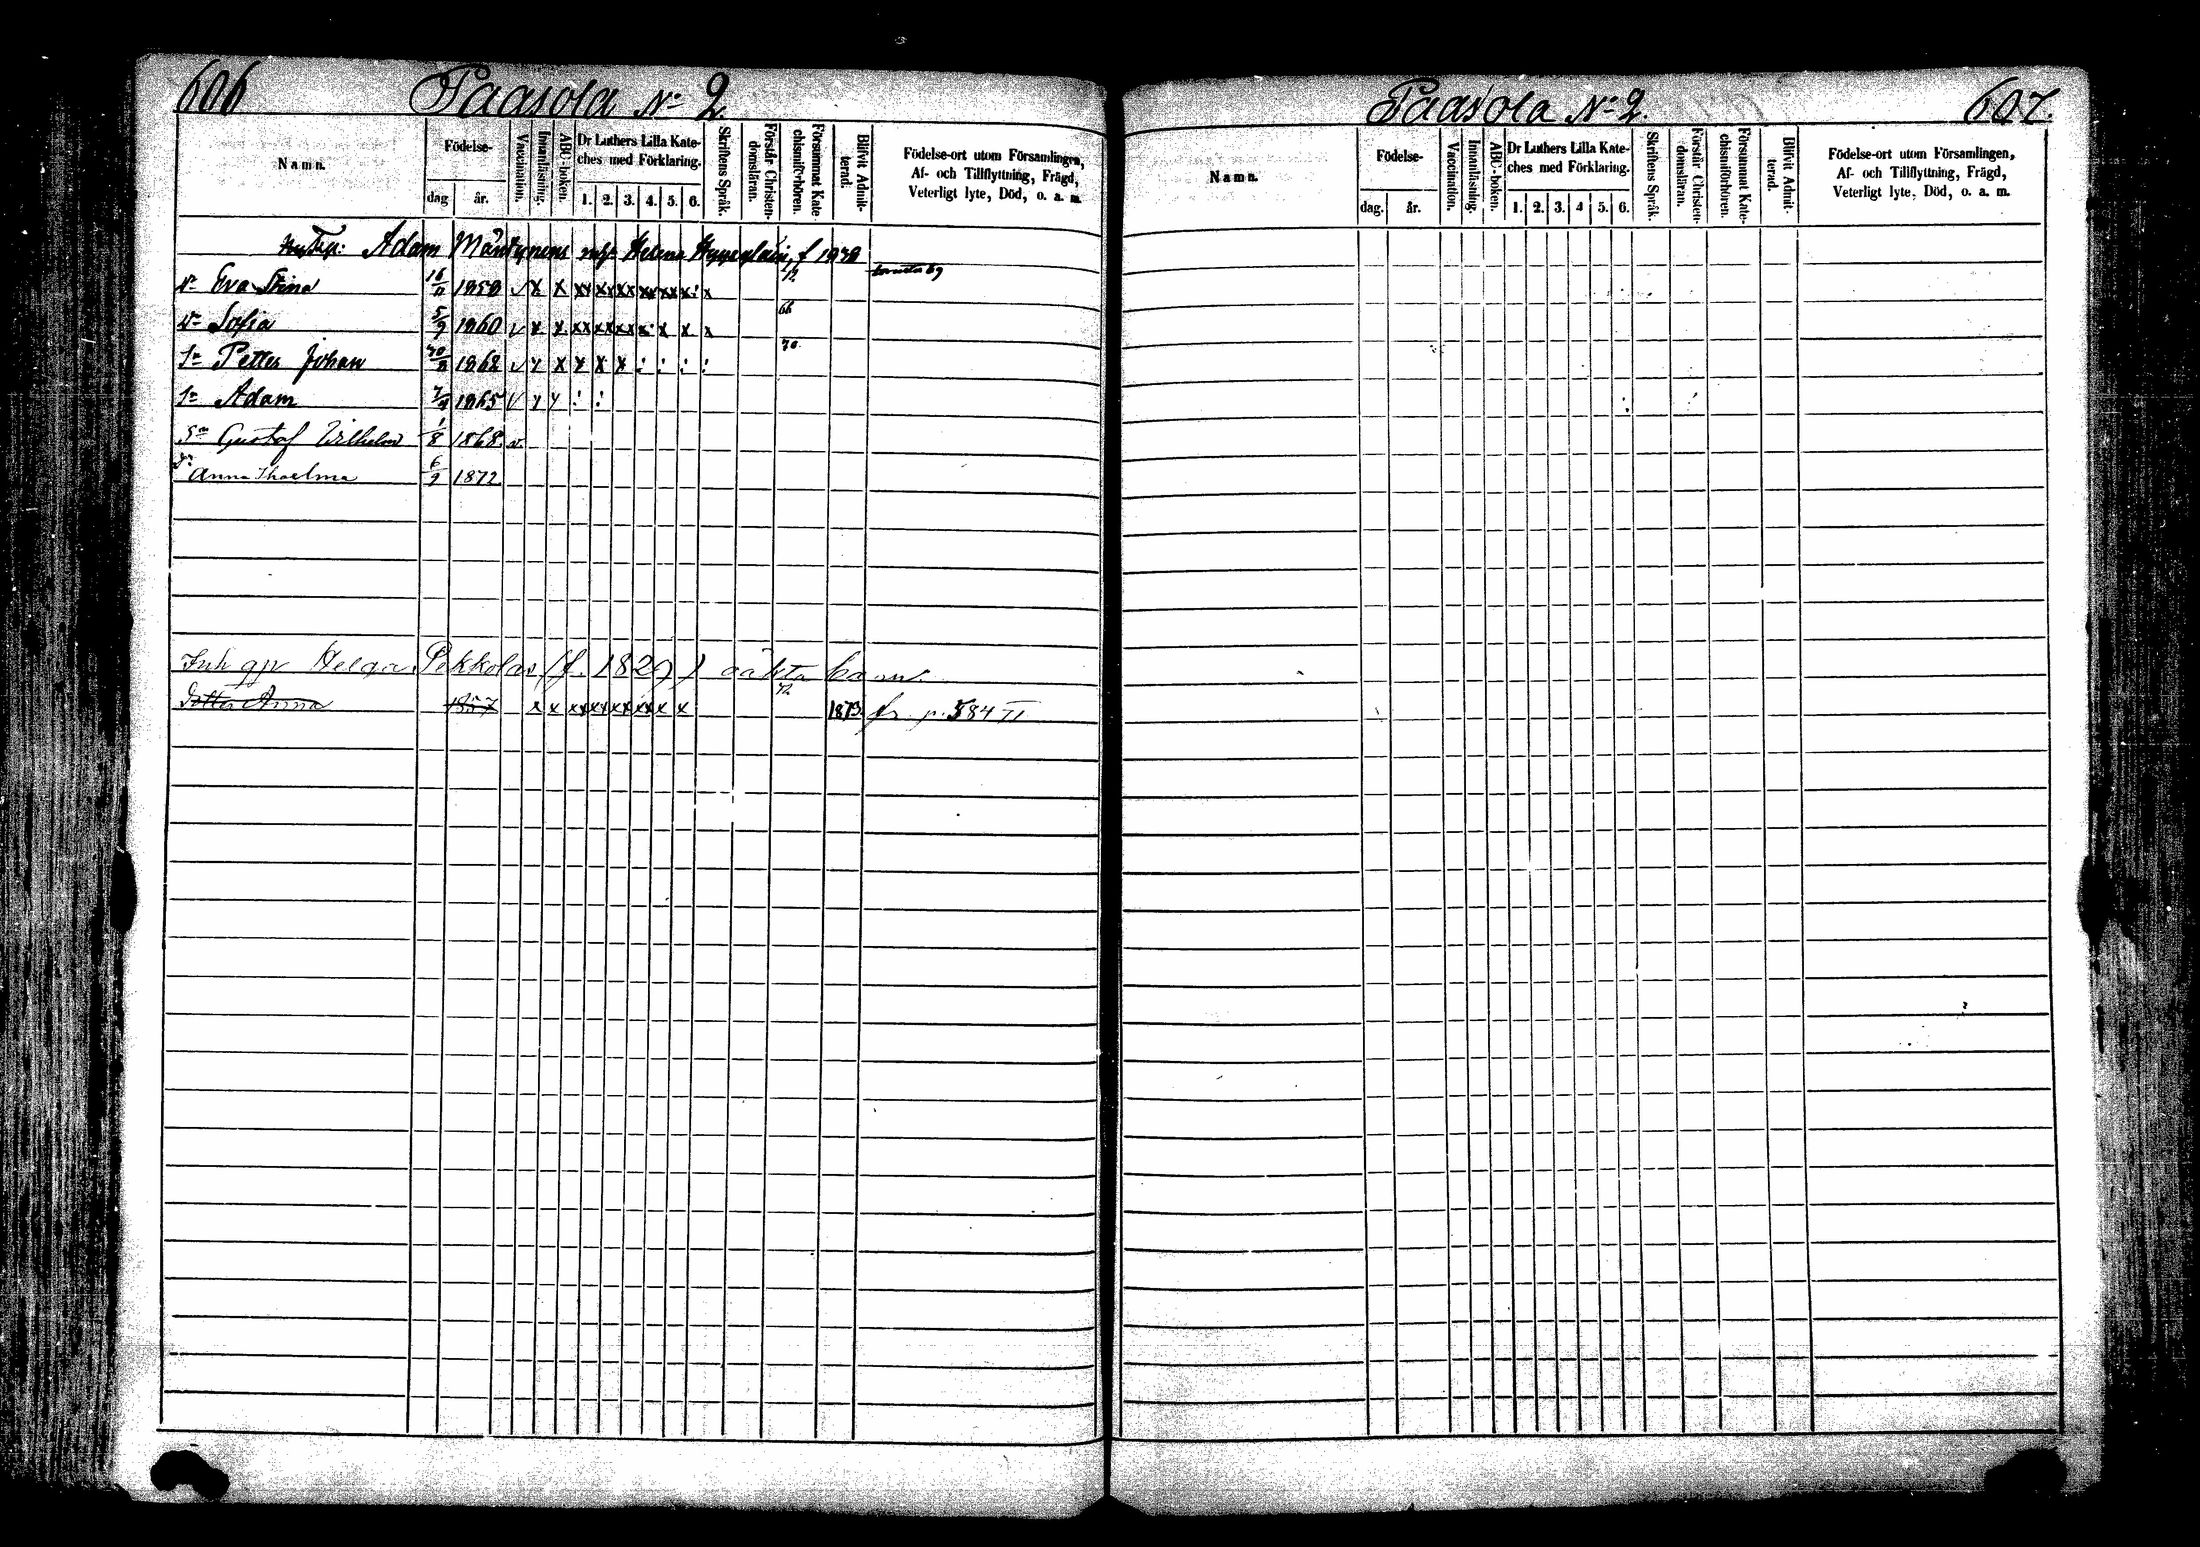 606 Paasola No 2.
Namn.
Födelse-
dag
år.
Vaccination.
Innanläsning.
ABC-boken.
Dr Luthers Lilla Kate-
ches med Förklaring.
1. 2. 3. 4. 5. 6.
Skriftens Språk.
Förstår Christen-
domsläran.
Försummat Kate-
chismiförhören.
Blifvit Admit-
terad.
Födelse-ort utom Församlingen,
Af- och Tillflyttning, Frägd,
Veterligt lyte, Död, o. a. m.
Adam Mäntynens Helena
dr Eva Stina 16/11 1858 v x x xx xx xx xx xx x: x
dr Sofia 5/9 1860 v x x xx xx xx x: x x x 66
sn Petter Johan 1862 v x x x x x : : : : 70
sn Adam 1865 v x x : :
sn Gustaf Wilhelm 1/8 1868 v.
dr Anna 6/9 1872
Inh Helga Pekkolas (f. 1829) oäkta barn
Dotter Anna 1857 x x xx xx xx xx x x 72 1873. fr. p. 584 II
Paasola No 2. 607.
Namn.
Födelse-
dag.
år.
Vaccination.
Innanläsning.
ABC-boken.
Dr Luthers Lilla Kate-
ches med Förklaring.
1. 2. 3. 4 5. 6.
Skriftens Språk.
Förstår Christen-
domsläran.
Försummat Kate-
chismiförhören.
Blifvit Admit-
terad.
Födelse-ort utom Församlingen,
Af- och Tillflyttning, Frägd,
Veterligt lyte, Död, o. a. m.